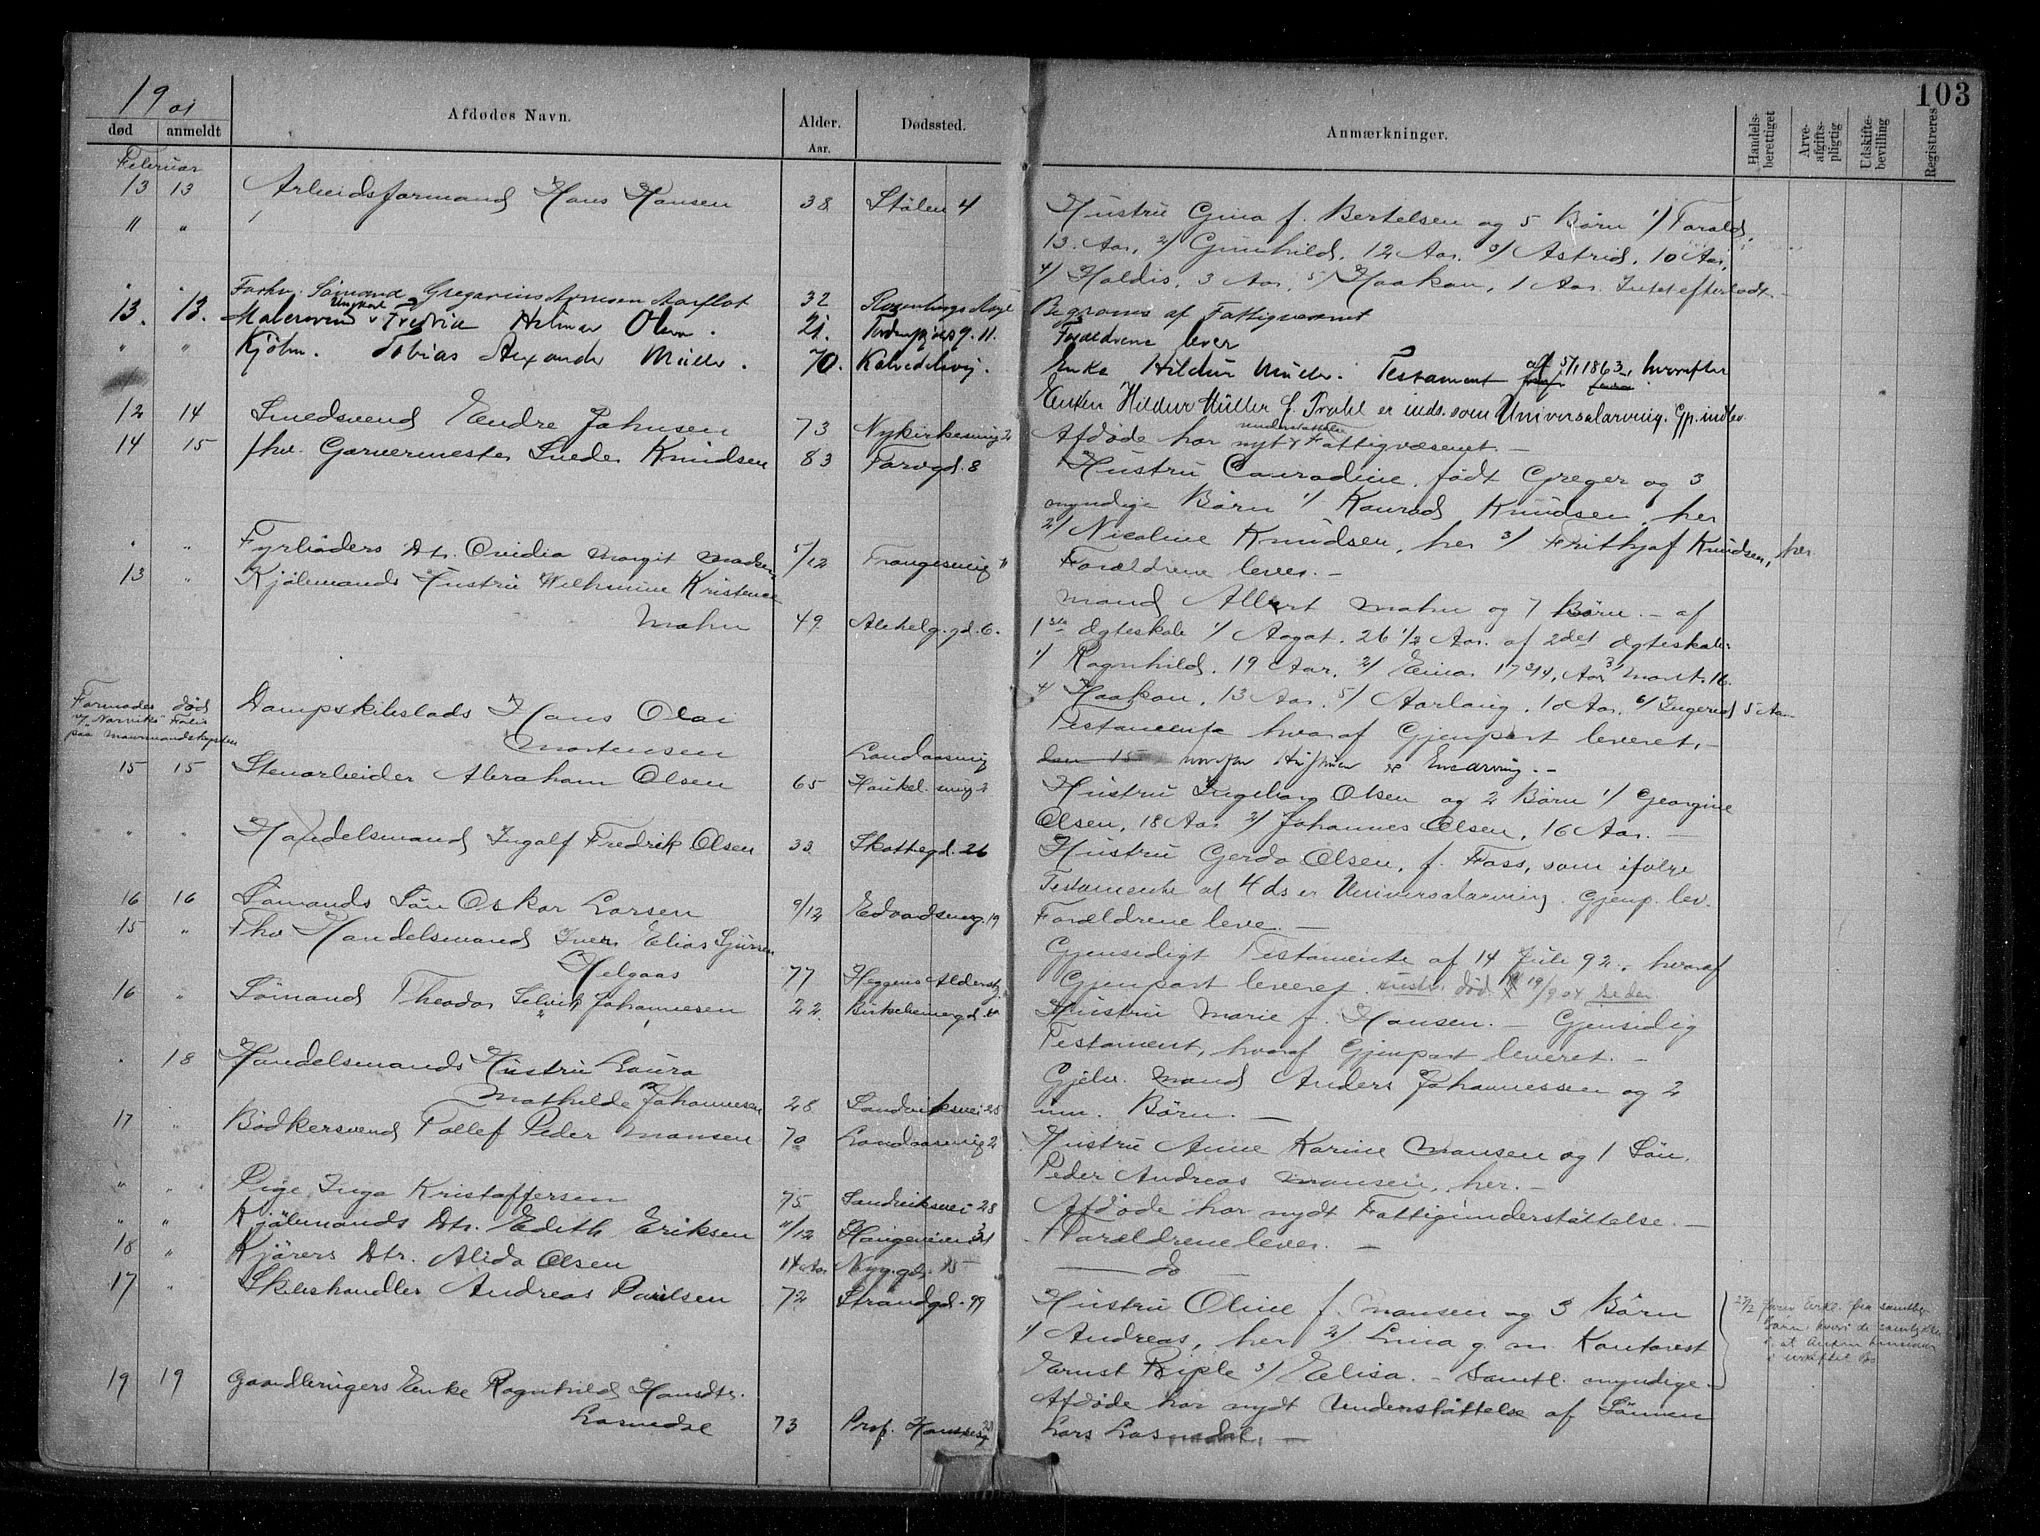 103
19 01
død anmeldt
Afdødes Navn.
Alder. Aar.
Dødssted.
Anmærkninger.
Handels-berettiget
Arve-afgifts-pligtig
Udskifte-bevilling
Registreres
Februar
13 13 Arbeidsformand Hans Hansen 38 Stølen 4
Hustru Gina f. Bertelsen og 5 Børn 1/ Torald,
13 Aar, 2/ Gunhild, 12 Aar 3/ Astrid, 10 Aar,
4/ Haldis, 3 Aar, 5/ Haakon, 1 Aar. Intet efterladt.
" " Forhv. Sømand Gregorius 32
Begraves af Fattigvæsenet
13. 13. Malersvend Ungkarl Fredrik Hilmar Olsen. 21. 11.
Forældrene lever
" " Kjøbm. Tobias Alexander Müller. 70. Kalvedalsvej.
Enke Hildur Müller. Testament af 5/1 1863, hvorefter
Enken Hildur Müller f. Prahl er inds. som Universalarving. Gp. indlev.
12 14 Smedsvend Endre Johnsen 73 Nykirkesmug 2
Afdøde har nydt understøttelse Fattigvæsenet. —
14 15 fhv. Garvermester Sneder Knudsen 83 Torvgd. 8
Hustru Conradine, født Greger og 3
myndige Børn 1/ Konrad Knudsen, her
2/ Nicoline Knudsen, her 3/ Frithjof Knudsen, her
" " Fyrbøders Dtr. Ovidia Margit Madsen 5/12 Trangesmug 11
Forældrene lever. —
13 " Kjølemands Hustru Wilhmine Kristence
Mohn 49 Alehelg. gd. 6.
Mand Albert Mohn og 7 Børn. — af
1ste Ægteskab 1/ Aagot, 26 1/2 Aar. af 2det Ægteskab:
1/ Ragnhild, 19 Aar, 2/ Einar 17 3/4 Aar, 3/ Margt. 16.
4/ Haakon, 13 Aar, 5/ Aarlaug, 10 Aar, 6/ Ingerid 5 Aar
Formodes død
v/ "Narviks" Forlis
paa Murmandskysten
Dampskibslods Hans Olai
Mortensen Landaasmug
Testamente hvoraf Gjenpart leveret, —
Hustruen er Enearving. —
15 15 Stenarbeider Abraham Olsen 65 Haukel. smug 2
Hustru Ingeborg Olsen og 2 Børn 1/ Georgine
Olsen, 18 Aar 2/ Johannes Olsen, 16 Aar. —
" " Handelsmand Ingolf Fredrik Olsen 33 Skottegd. 26
Hustru Gerda Olsen, f. Foss, som ifølge
Testamente af 4 ds er Universalarving. Gjenp. lev.
16 16 Sømands Søn Oskar Larsen 9/12 Edvardsmug. 19
Forældrene leve. —
15 " Fhv Handelsmand Iver Elias Sjursen
Helgaas 77 Heggens Alders
Gjensidigt Testamente af 14 Juli 92, hvoraf
Gjenpart leveret. Hustr. død 19/9 04 se der.
16 " Sømand Theodor Selvik Johannesen 22. Birkebeinergd.
Hustru Marie f. Hansen. — Gjensidig
Testament, hvoraf Gjenpart leveret. —
" 18 Handelsmands Hustru Laura
Mathilde Johannesen 28 Sandviksvei 25
Gjelv. Mand Anders Johannessen og 2
um. Børn. —
17 " Bødkersvend Tollef Peder Monsen 70 Landaasmug 2
Hustru Anne Karine Monsen og 1 Søn
Peder Andreas Monsen, her. —
" " Pige Inga Kristoffersen 75 Sandviksvei 28
Afdøde har nydt Fattigunderstøttelse. —
" " Kjølemands Dtr. Edith Eriksen 11/12 Haugeveien 31
Forældrene lever. —
18 " Kjørers Dtr. Alida Olsen 14 Aar Nygd. 15
— do —
17 " Skibshandler Andreas Paulsen 72 Strandgd. 99
Hustru Oline f. Monsen og 3 Børn
1/ Andreas, her 2/ Lina g. m Kontorist
Ernst Riple 3/ Elisa. — Samtl. myndige. —
19 19 Gaardbrugers Enke Ragnhild Hansdtr.
Lasmedal 73 Prof. Hansens 28
Afdøde har nydt Understøttelse af Sønnen
Lars Lasmedal. —